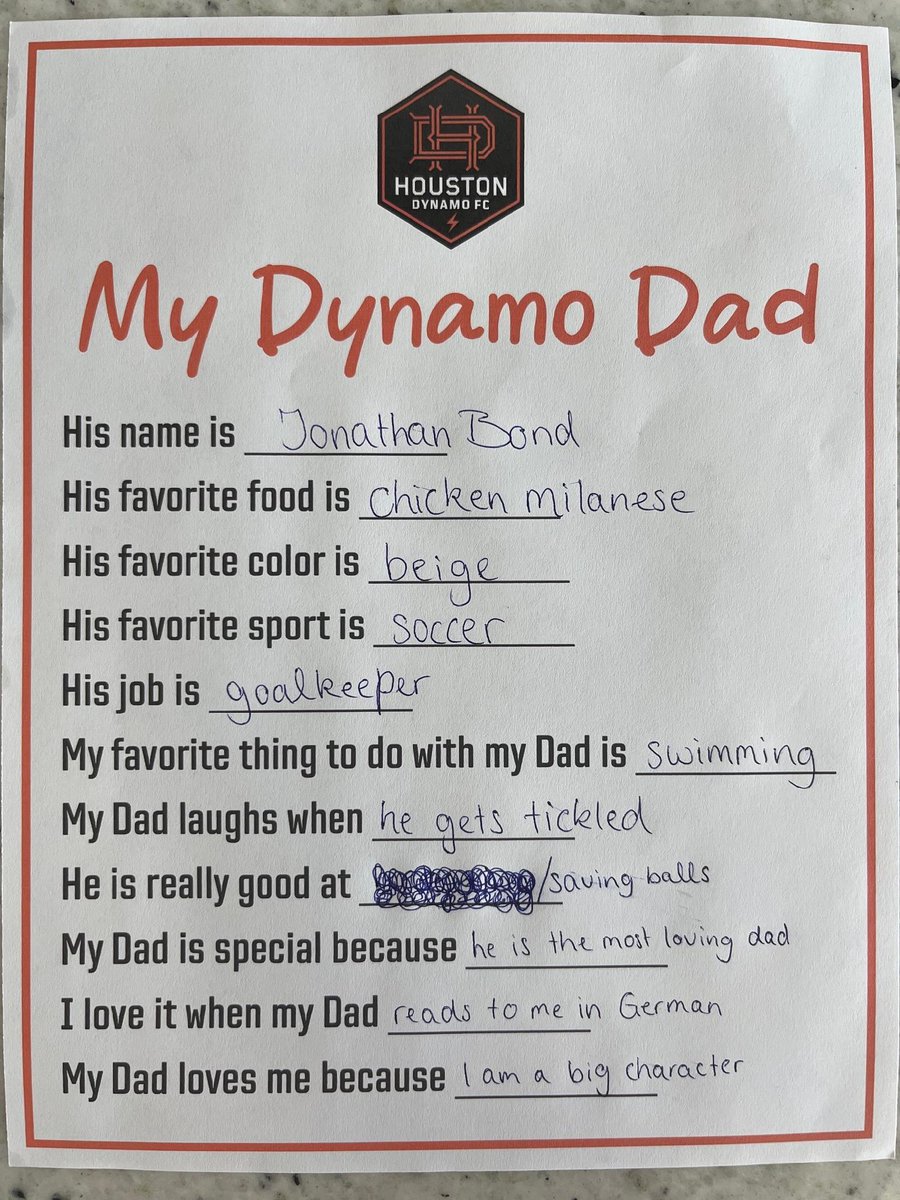 HD
HOUSTON
DYNAMO FC
My Dynamo Dad
His name is Jonathan Bond
His favorite food is chicken milanese
His favorite color is beige
His favorite sport is soccer
His job is goalkeeper
My favorite thing to do with my Dad is swimming
My Dad laughs when he gets tickled
He is really good at /saving balls
My Dad is special because he is the most loving dad
I love it when my Dad reads to me in German
My Dad loves me because I am a big character